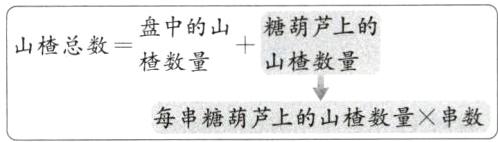 山楂总数=盘中的山楂数量+糖葫芦上的山楂数量
每串糖葫芦上的山楂数量×串数